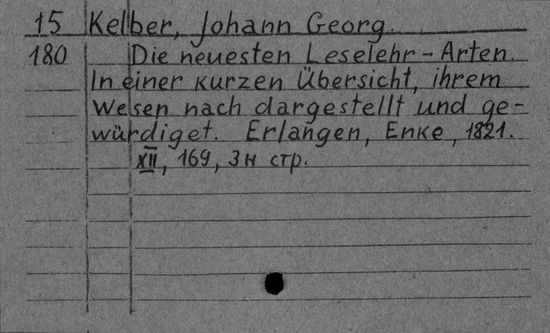 15 Kelber, Johann Georg.
180 Die neuesten Leselehr-Arten.
In einer kurzen Übersicht, ihrem
Wesen nach dargestellt und ge-
würdiget. Erlangen, Enke, 1821.
XII, 169, 3н стр.